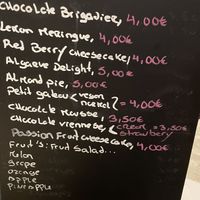 Chocolate Brigadier, 4,00€
Lemon Meringue, 4,00€
Red Berry Cheesecake, 4,00€
Algarve Delight, 5,00€
Almond pie, 5,00€
Petit gateau < vegan
normal } = 4,00€
Chocolate Mousse, 3,50€
Chocolate viennese, < cream = 3,50€
strawberry
Passion Fruit Cheesecake, 4,00€
Fruit's: Fruit Salad...
Melon
grape
orange
apple
pineapple